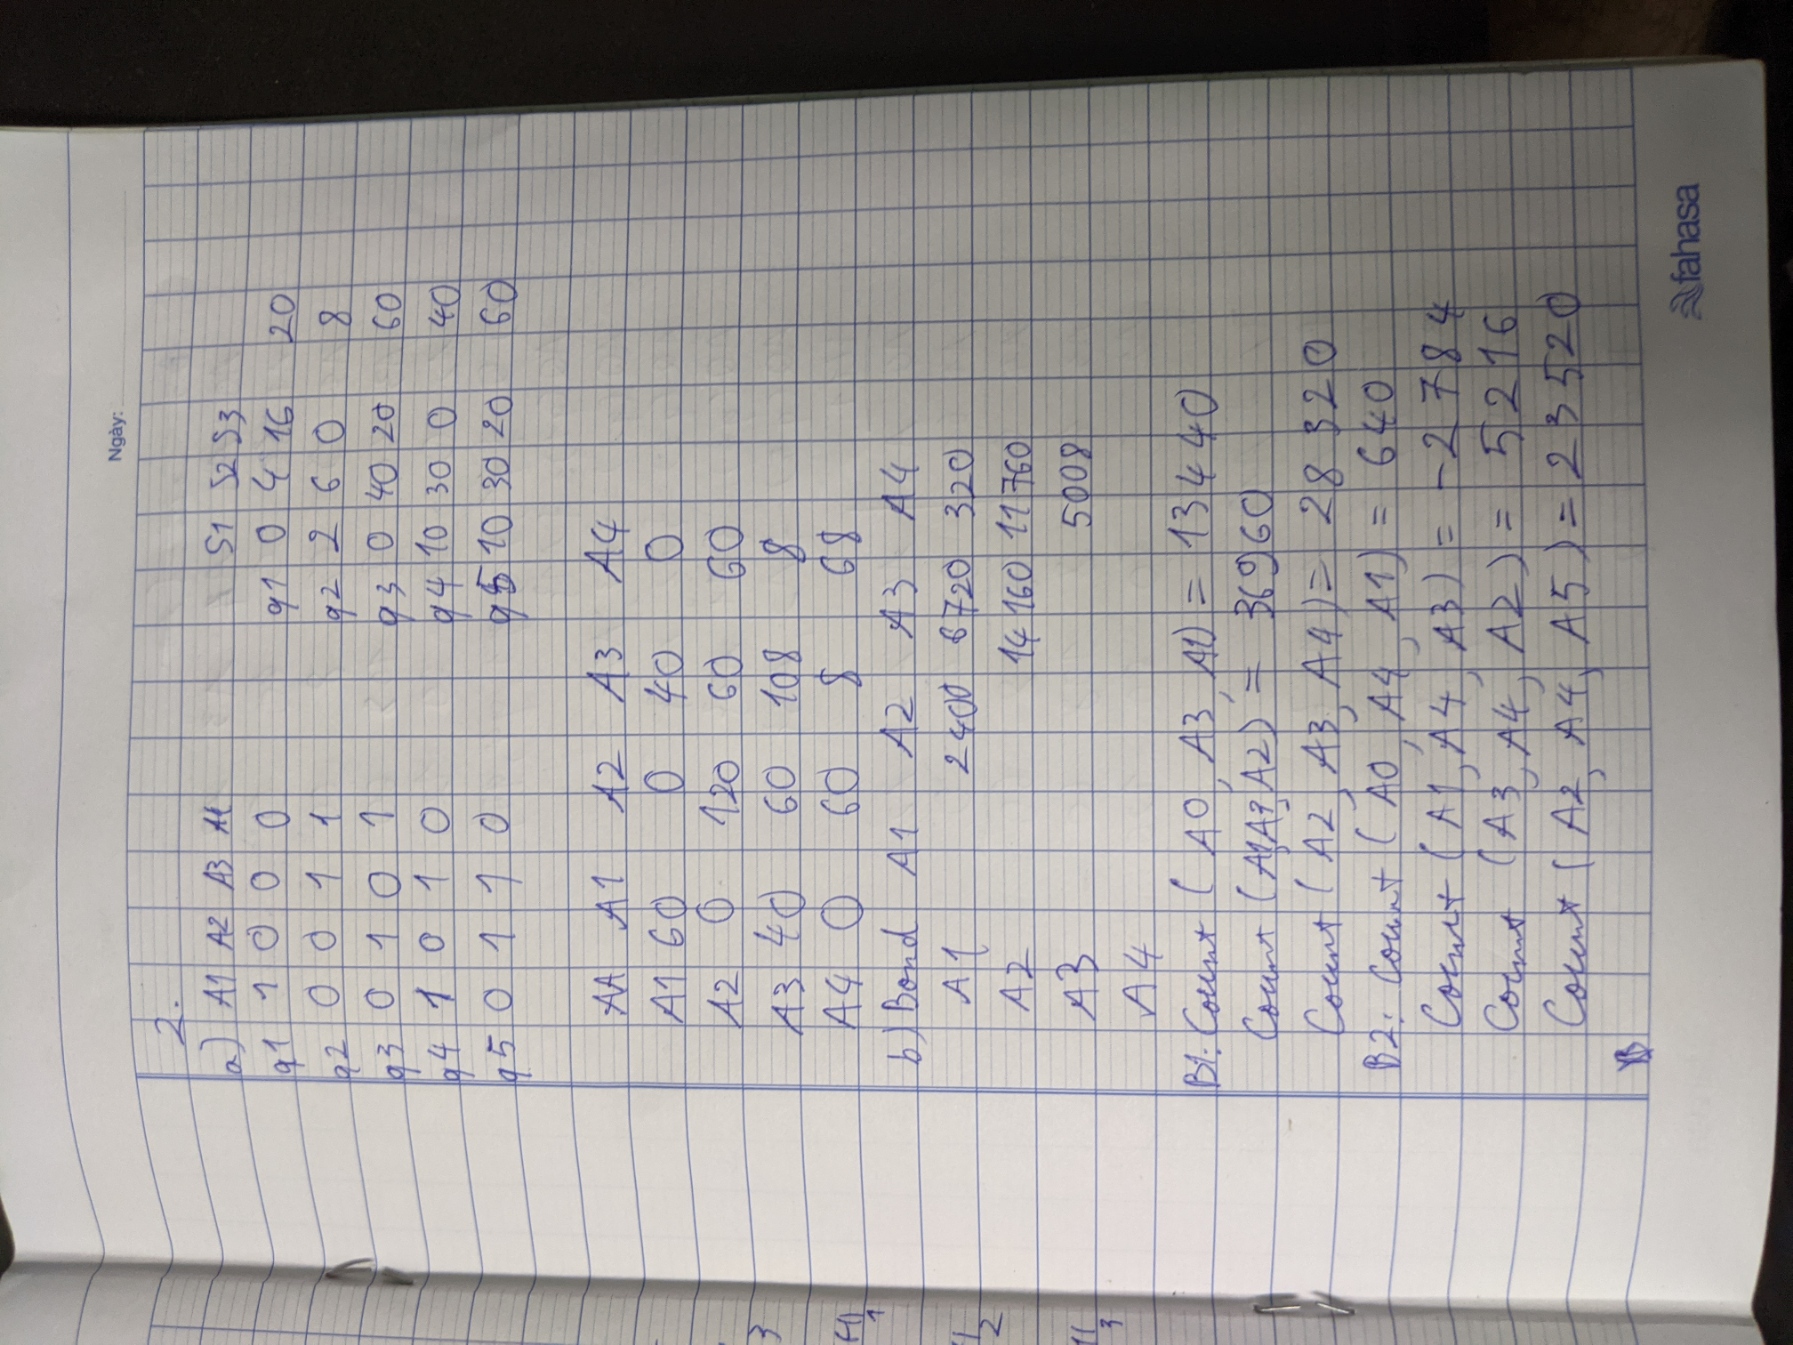 Ngày:
2.
a) A1 A2 A3 A4 S1 S2 S3
q1 1 0 0 0 q1 0 4 16 20
q2 0 0 1 1 q2 2 6 0 8
q3 0 1 0 1 q3 0 40 20 60
q4 1 0 1 0 q4 10 30 0 40
q5 0 1 1 0 q5 10 30 20 60
AA A1 A2 A3 A4
A1 60 0 40 0
A2 0 120 60 60
A3 40 60 108 8
A4 0 60 8 68
b) Bond A1 A2 A3 A4
A1 2400 6720 320
A2 14160 11760
A3 5008
A4
B1: Count (A0, A3, A1) = 13440
Count (A1, A3, A2) = 36960
Count (A2, A3, A4) = 28320
B2: Count (A0, A4, A1) = 640
Count (A1, A4, A3) = -2784
Count (A3, A4, A2) = 5216
Count (A2, A4, A5) = 23520
fahasa